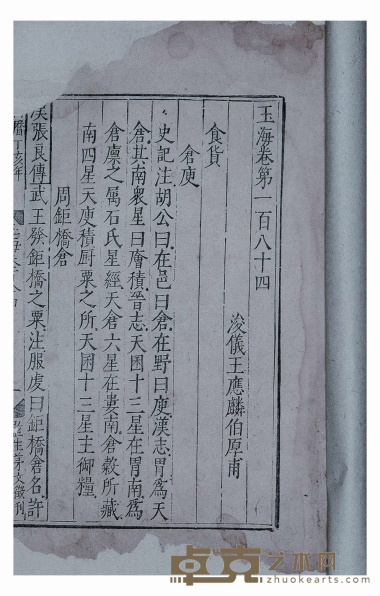 玉海卷第一百八十四
浚儀王應麟伯厚甫
食貨
倉庾
史記注胡公曰在邑曰倉在野曰庾漢志胃爲天
倉其南衆星曰廥積晉志天囷十三星在胃南爲
倉廪之属石氏星經天倉六星在婁南倉穀所藏
南四星天庾積厨粟之所天囷十三星主御糧
周鉅橋倉
張良傳武王發鉅橋之粟注服虔曰鉅橋倉名許
丁亥年
監生茅文徵刋
卓克艺术网
www.zhuokearts.com